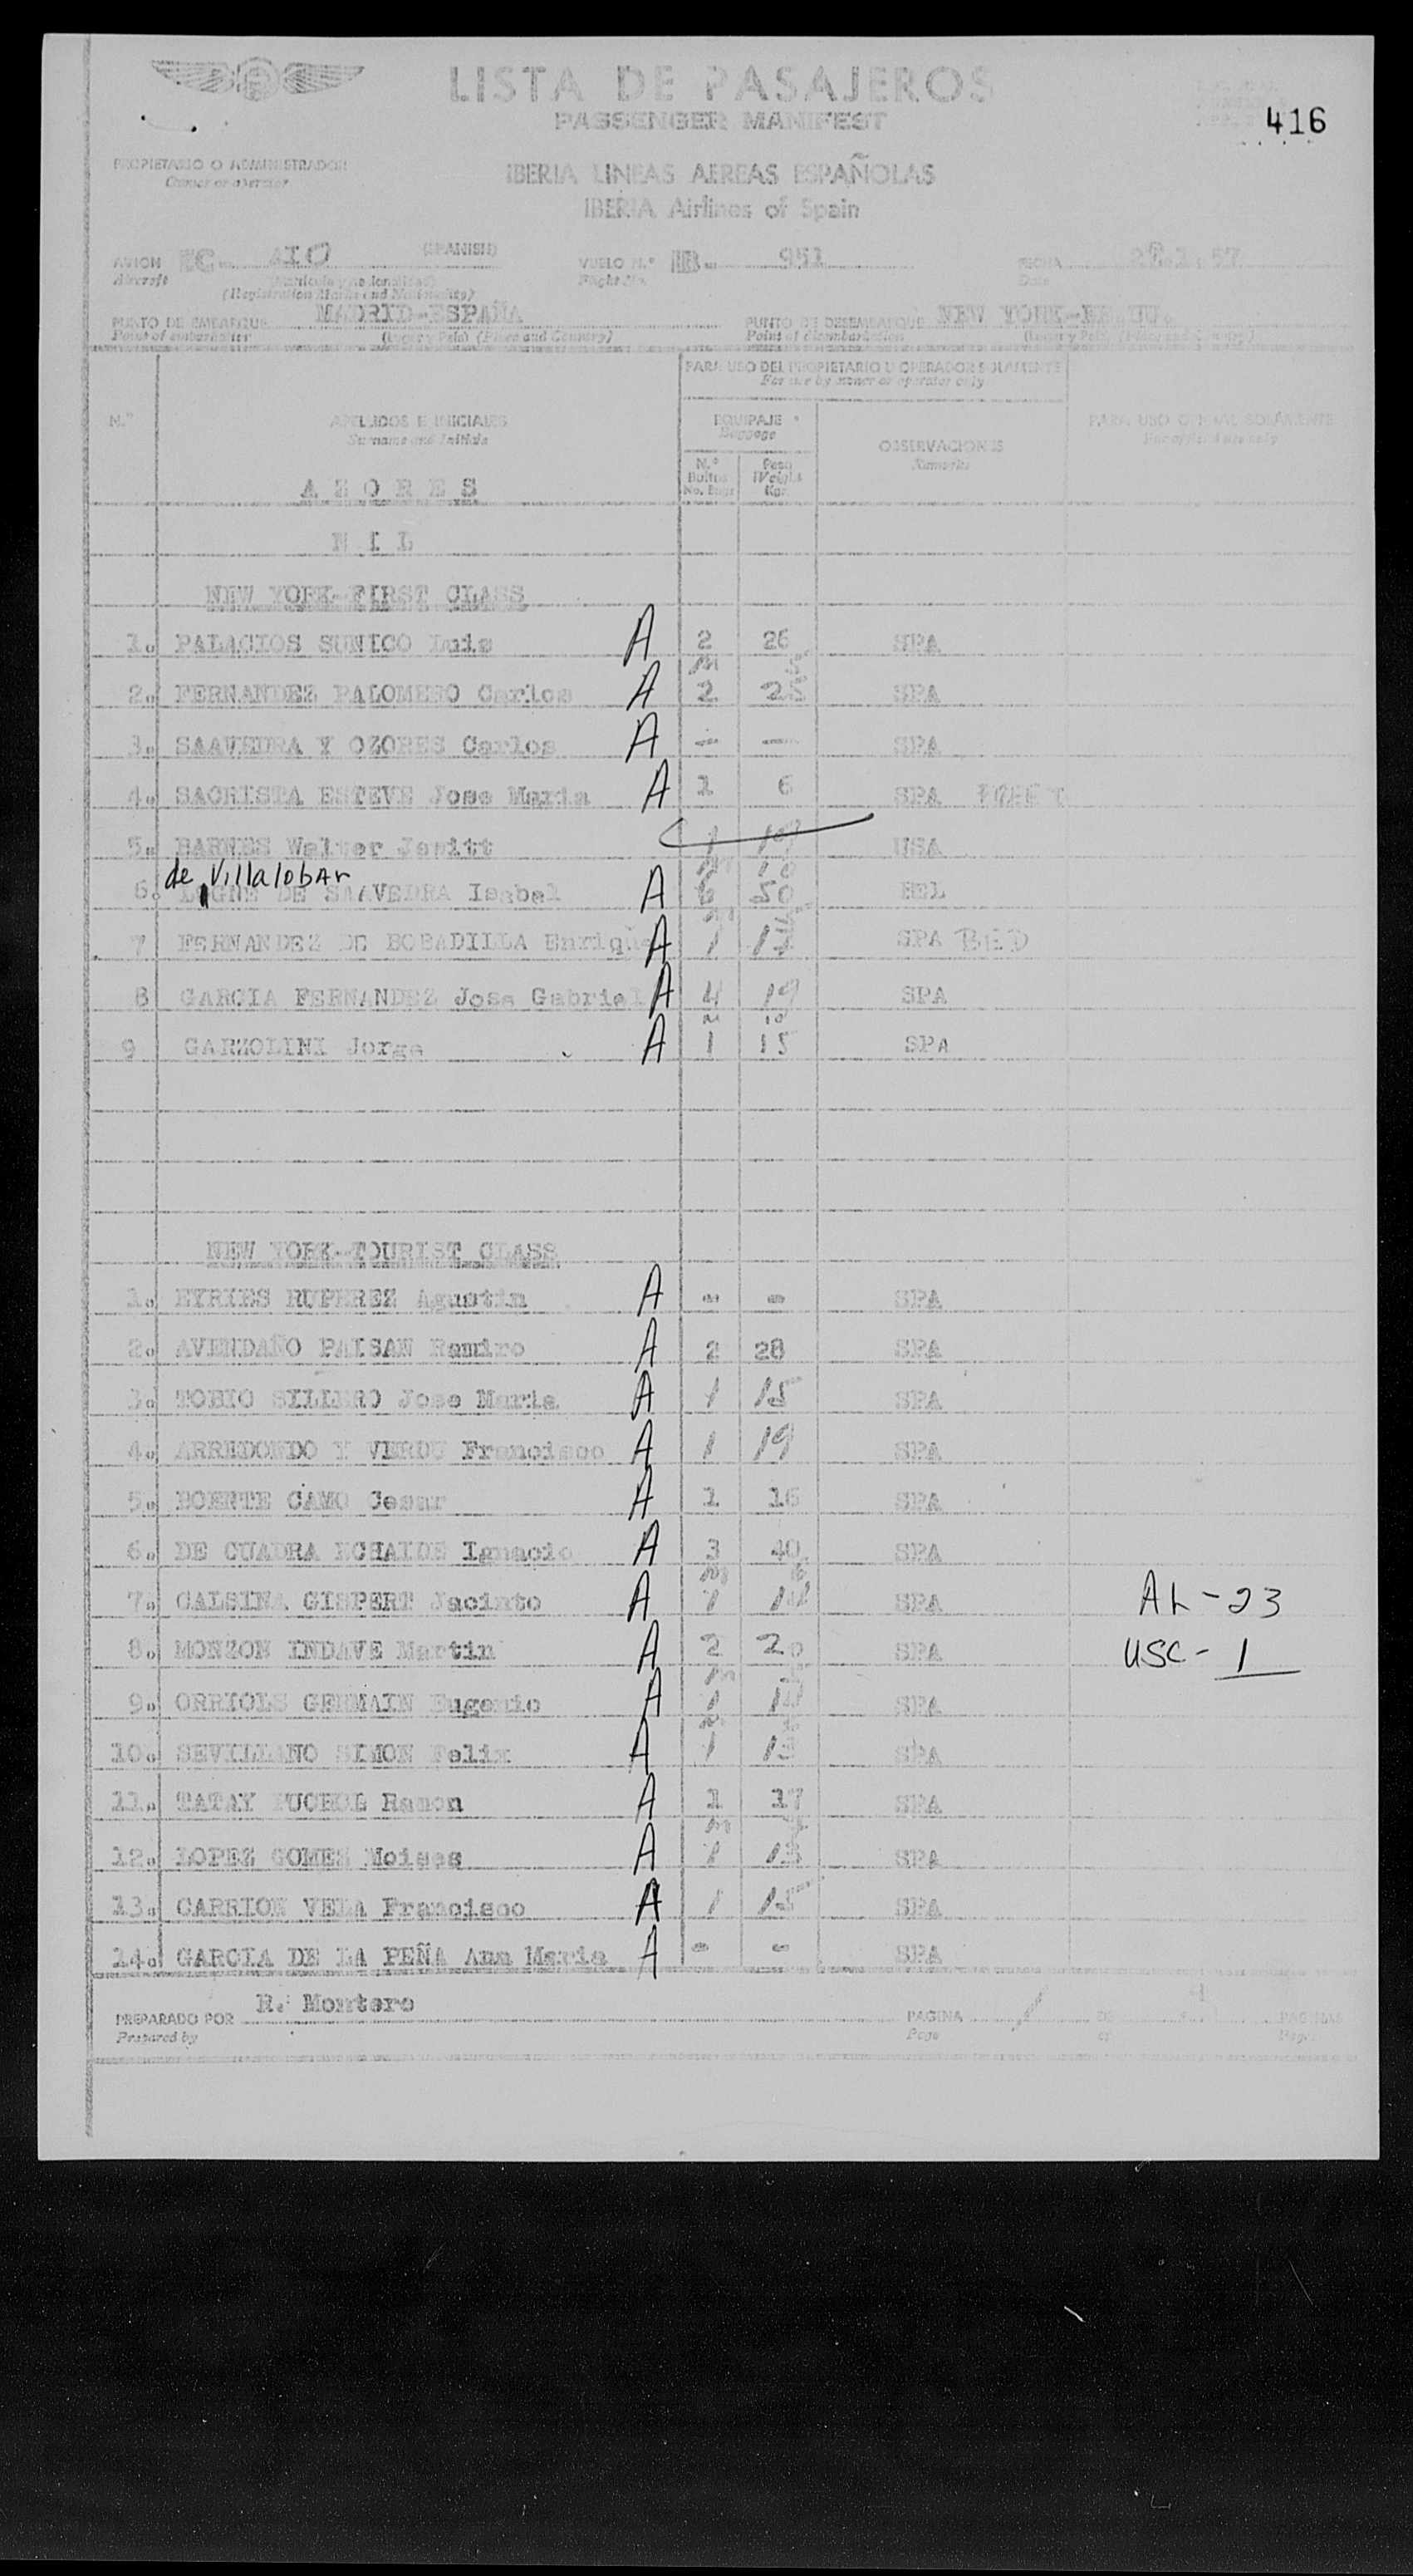 LISTA DE PASAJEROS
PASSENGER MANIFEST
416
PROPIETARIO O ADMINISTRADOR
Owner or operator
IBERIA LINEAS AEREAS ESPAÑOLAS
IBERIA Airlines of Spain
AVION EC- AIO (SPANISH) VUELO N.º IB- 951 FECHA 28.1.57
Aircraft (Matrícula y nacionalidad) Flight No. Date
(Registration Marks and Nationality)
PUNTO DE EMBARQUE MADRID-ESPAÑA PUNTO DE DESEMBARQUE NEW YORK-EE.UU.
Point of embarkation (Lugar y País) (Place and Country) Point of disembarkation (Lugar y País) (Place and Country)
PARA USO DEL PROPIETARIO U OPERADOR SOLAMENTE
For use by owner or operator only
N.º APELLIDOS E INICIALES EQUIPAJE OBSERVACIONES PARA USO OFICIAL SOLAMENTE
Surname and Initials Baggage Remarks For official use only
N.º Bultos Peso Weight Kgr.
AZORES
NIL
NEW YORK-FIRST CLASS
1. PALACIOS SUNICO Luis A 2 26 SPA
2. FERNANDEZ PALOMERO Carlos A 2 SPA
3. SAAVEDRA Y OZORES Carlos A - - SPA
4. SACRISTA ESTEVE Jose Maria A 1 6 SPA
5. BARNES Walter 1 USA
de Villalobar
6. DE SAAVEDRA Isabel A 50 BEL
7 FERNANDEZ DE BOBADILLA Enrique A 1 SPA
8 GARCIA FERNANDEZ Jose Gabriel A 4 19 SPA
9 GARZOLINI Jorge A 1 15 SPA
NEW YORK-TOURIST CLASS
1. EYRIES RUPEREZ Agustin A - - SPA
2. AVENDAÑO PAISAN Ramiro A 2 28 SPA
3. TOBIO SILLERO Jose Maria A 1 15 SPA
4. ARREDONDO Y VERDU Francisco A 1 19 SPA
5. CAMO Cesar A 1 16 SPA
6. DE CUADRA ECHAIDE Ignacio A 3 40 SPA
7. CALSINA GISPERT Jacinto A 1 SPA AL-23
8. MONZON INDAVE Martin A 2 20 SPA USC-1
9. ORRIOLS GERMAIN Eugenio A 1 SPA
10. SEVILLANO SIMON Felix A 1 13 SPA
11. TATAY PUCHOL Ramon A 1 17 SPA
12. LOPEZ GOMEZ Moises A 1 13 SPA
13. CARRION VELA Francisco A 1 15 SPA
14. GARCIA DE LA PEÑA Ana Maria A - - SPA
PREPARADO POR R. Montero PAGINA 1 DE PAGINAS
Prepared by Page of Pages